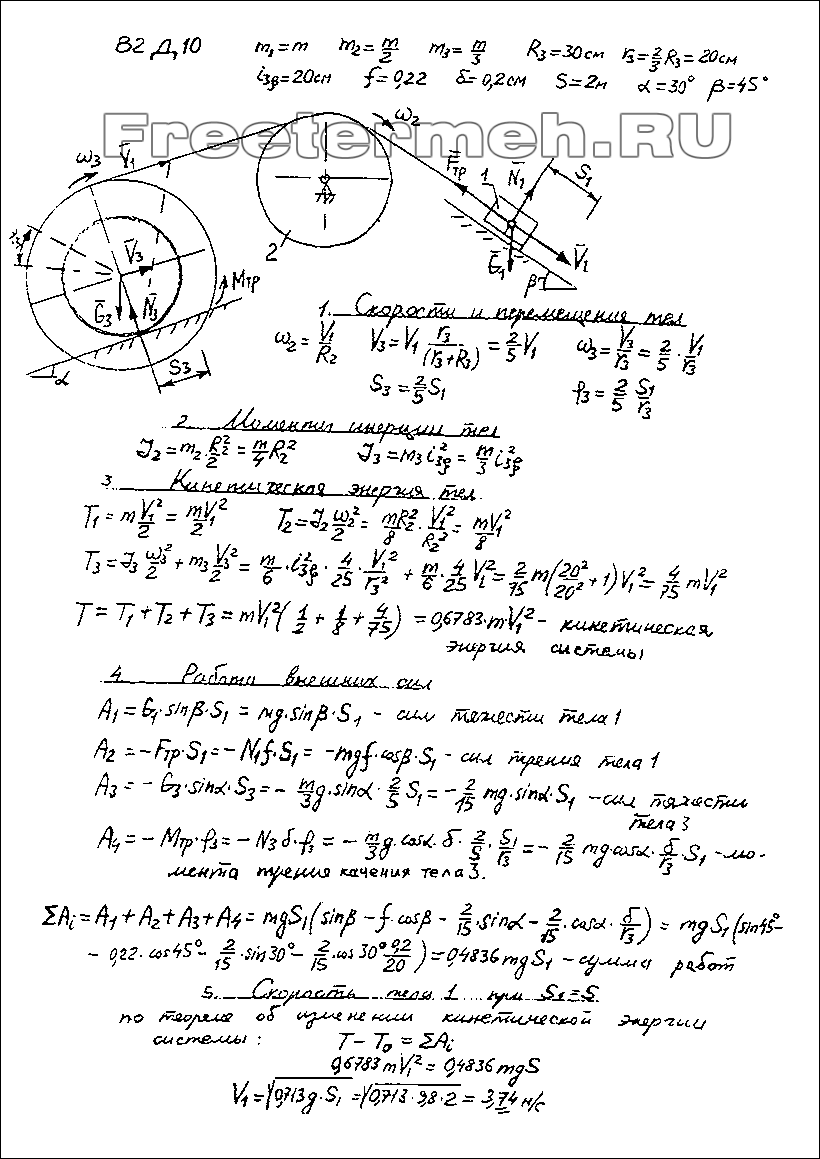 В2 Д10 m₁=m m₂=m/2 m₃=m/3 R₃=30см r₃=2/3R₃=20см
i₃ᵩ=20см f=0,22 δ=0,2см S=2м α=30° β=45°
Freetermeh.RU
ω₃ V̄₁ ω₂ F̄тр 1 N̄₁ S₁
V̄₃ 2 Ḡ₁ V̄₁
Ḡ₃ N̄₃ Mтр β
α S₃
1. Скорости и перемещения тел
ω₂=V₁/R₂ V₃=V₁ r₃/(r₃+R₃)=2/5V₁ ω₃=V₃/r₃=2/5·V₁/r₃
S₃=2/5S₁ φ₃=2/5 S₁/r₃
2. Моменты инерции тел
J₂=m₂R₂²/2=m/4R₂² J₃=m₃i₃ᵩ²=m/3i₃ᵩ²
3. Кинетическая энергия тел.
T₁=mV₁²/2=mV₁²/2 T₂=J₂ω₂²/2=mR₂²/8·V₁²/R₂²=mV₁²/8
T₃=J₃ω₃²/2+m₃V₃²/2=m/6·i₃ᵩ²·4/25·V₁²/r₃²+m/6·4/25V₁²=2/75m(20²/20²+1)V₁²=4/75mV₁²
T=T₁+T₂+T₃=mV₁²(1/2+1/8+4/75)=0,6783·mV₁²- кинетическая
энергия системы
4. Работа внешних сил
A₁=G₁·sinβ·S₁=mg·sinβ·S₁ - сил тяжести тела 1
A₂=-Fтр·S₁=-N₁f·S₁=-mgf·cosβ·S₁ - сил трения тела 1
A₃=-G₃·sinα·S₃=-m/3g·sinα·2/5S₁=-2/15mg·sinα·S₁ -сил тяжести
тела 3
A₄=-Mтр·φ₃=-N₃δ·φ₃=-m/3g·cosα·δ·2/5·S₁/r₃=-2/15mgcosα·δ/r₃·S₁ -мо-
мента трения качения тела 3.
ΣAi=A₁+A₂+A₃+A₄=mgS₁(sinβ-f·cosβ-2/15·sinα-2/15·cosα·δ/r₃)=mgS₁(sin45°-
-0,22·cos45°-2/15·sin30°-2/15·cos30°0,2/20)=0,4836mgS₁ -сумма работ
5. Скорость тела 1 при S₁=S
по теореме об изменении кинетической энергии
системы: T-T₀=ΣAi
0,6783mV₁²=0,4836mgS
V₁=√0,713g·S₁=√0,713·9,8·2=3,74м/с